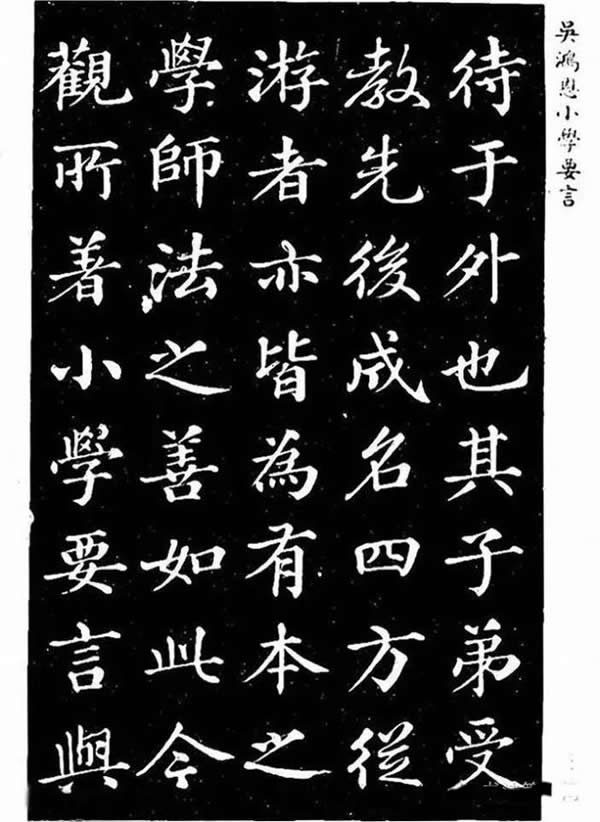 吳鴻恩小學要言
待于外也其子弟受
教先後成名四方從
游者亦皆為有本之
學師法之善如此今
觀所著小學要言與